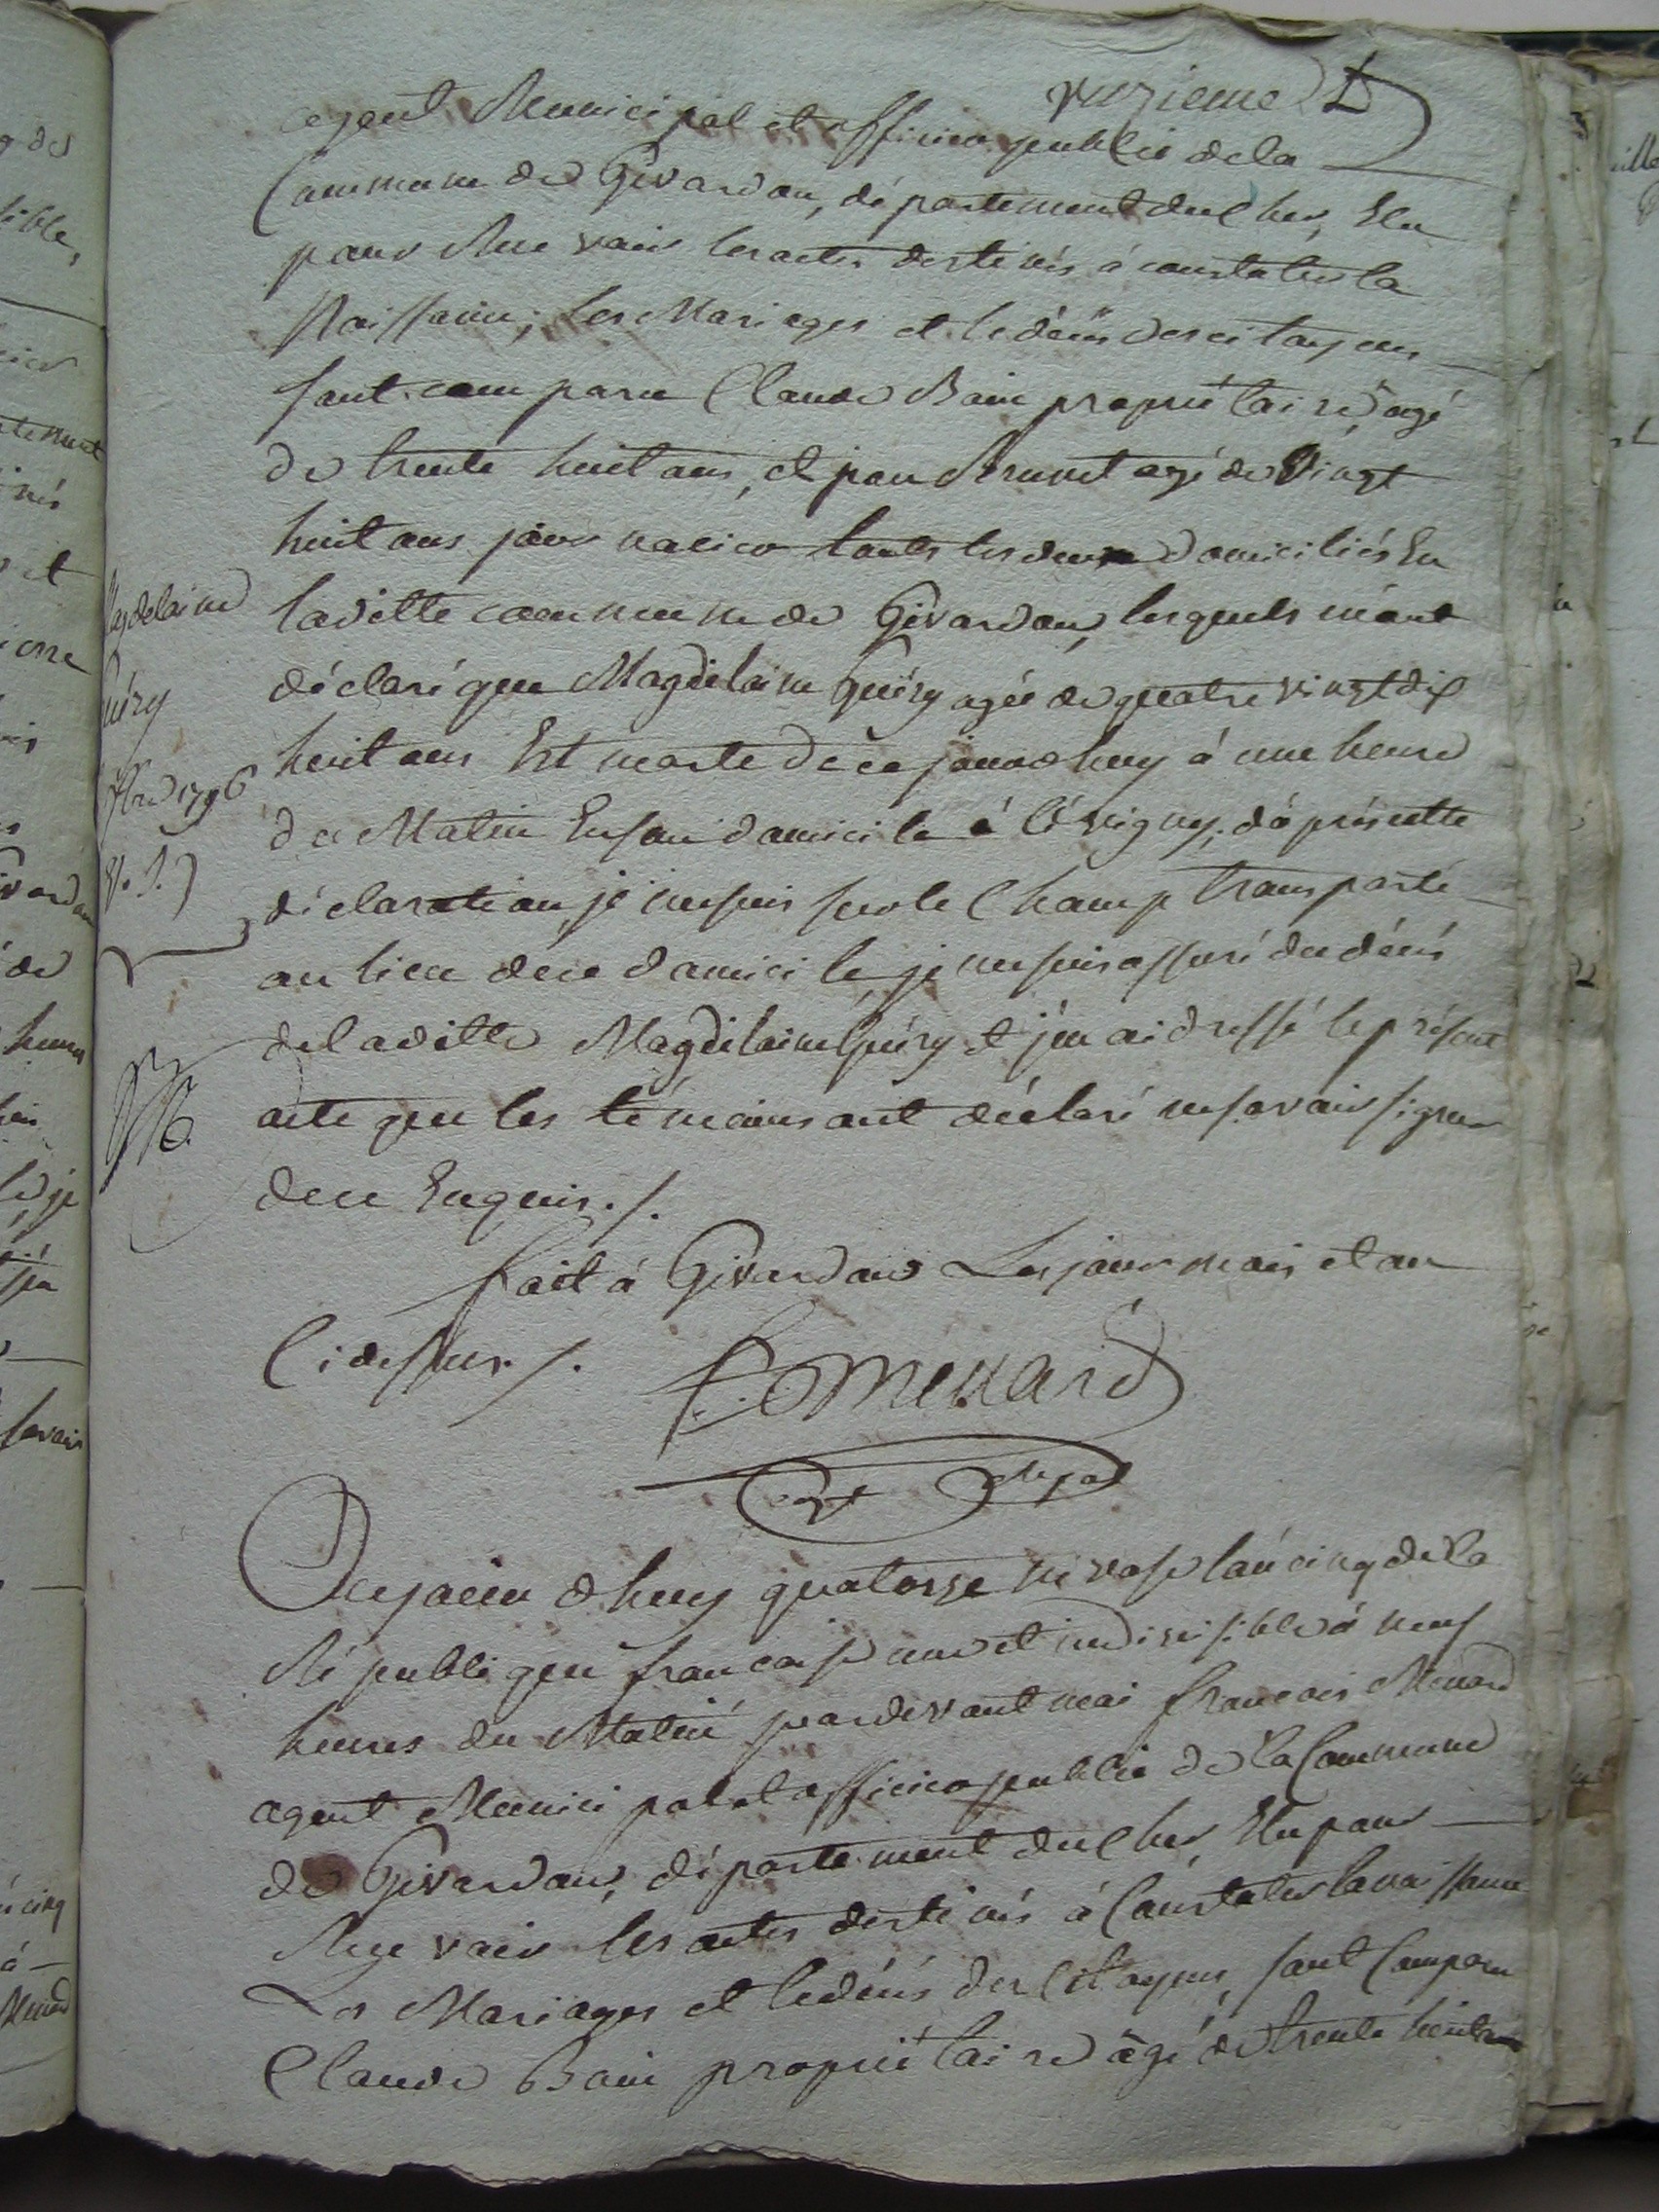 onzieme
agent Municipal et officier public de la
Commune de Givardon, département du Cher, Elu
pour Recevoir les actes destinés à constater la
Naissance, les Mariages et le décés des citoyens
sont comparu Claude Bain propriétaire, agé
de trente huit ans, et jean Brunet agé de Vingt
huit ans journalier touts les deux domiciliés En
laditte commune de Givardon, lesquels m'ont
déclaré que Magdelaine Guéry agée de quatre vingt dix
huit ans Est morte de ce jourdhuy à une heure
du Matin En son domicile à Lévigny, d'après cette
déclaration, je me suis sur le Champ transporté
au lieu de ce domicile, je me suis assuré du décés
de laditte Magdelaine Guéry et j'en ai dressé le présent
acte que les témoins ont déclaré ne savoir signer
de ce Enquis ./.
Magdelaine
Guéry
1796
V. S.
fait à Givardon Les jour mois et an
Cidessus ./. f. menard
agt Mpal
Aujourdhuy quatorze nivose l'an cinq de la
République francaise une et indivisible à neuf
heures du Matin pardevant moi francois Menard
agent Municipal et officier public de la Commune
de Givardon, département du Cher, Elu pour
Recevoir les actes destinés à Constater la naissance
Les Mariages et le décés des Citoyens, sont Comparu
Claude Bain propriétaire âgé de trente huit ans